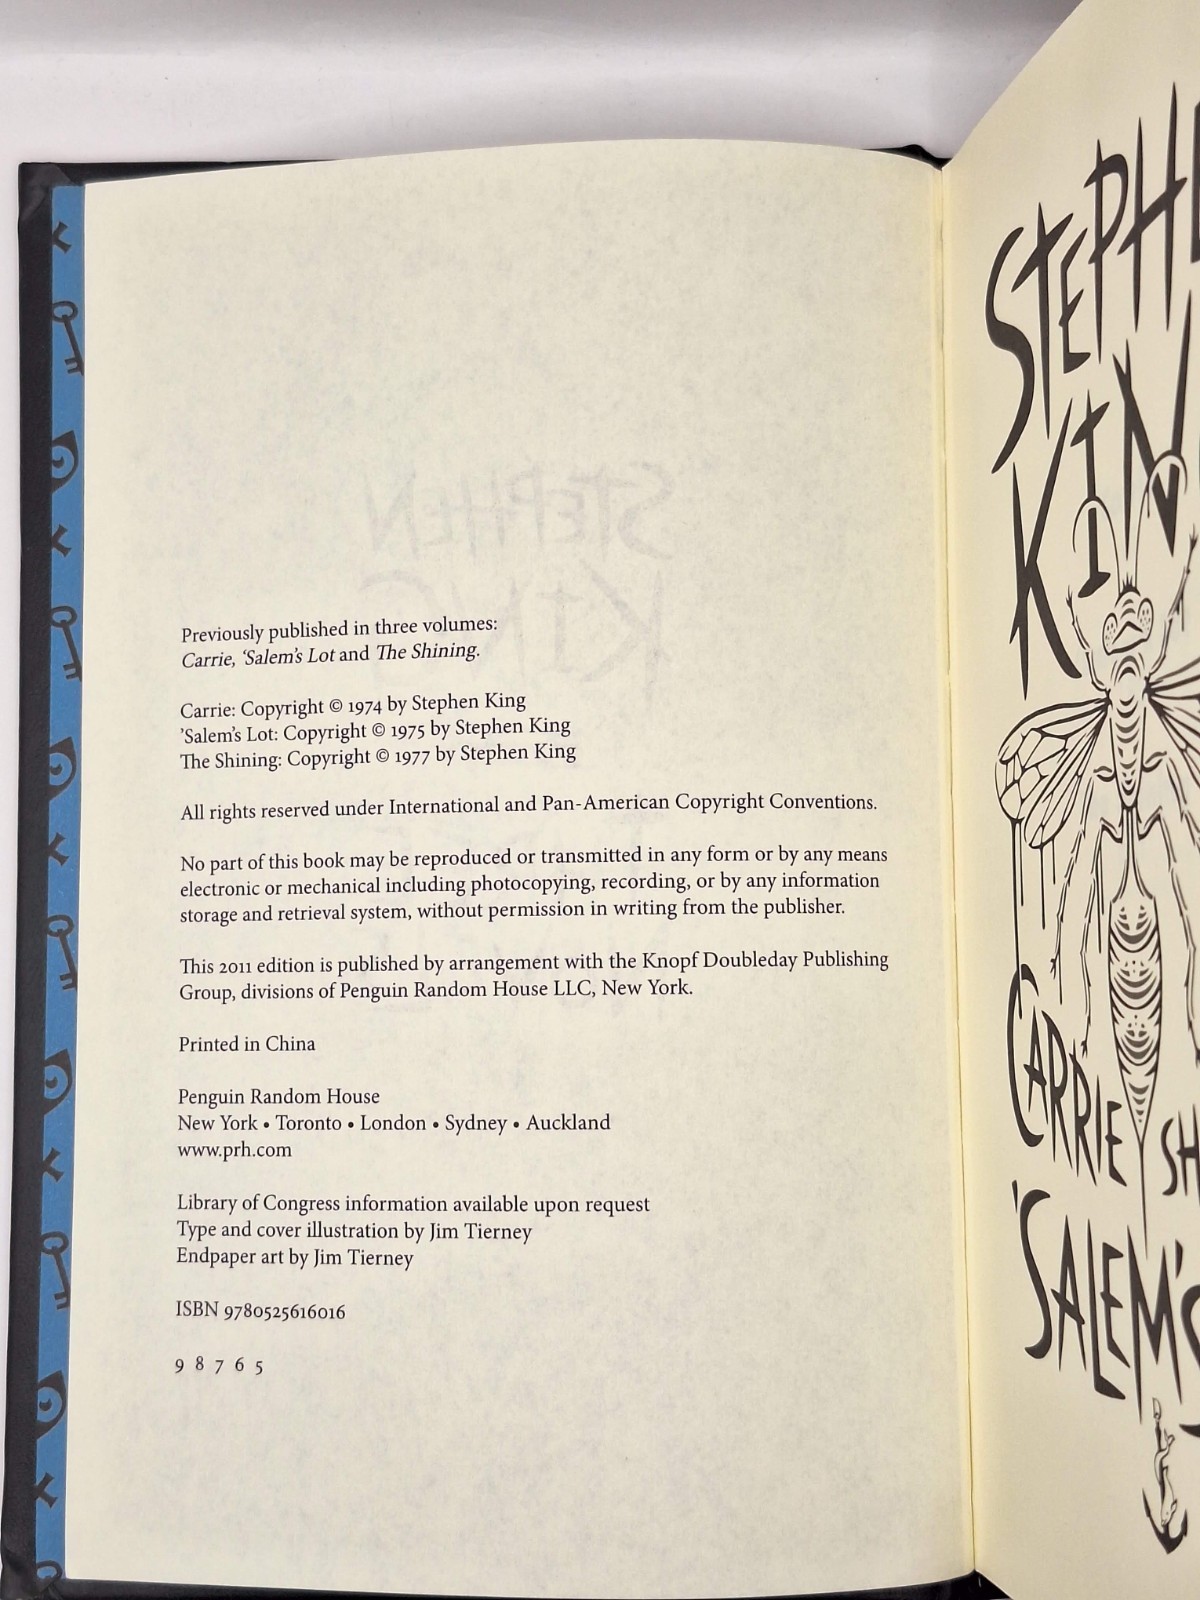 Previously published in three volumes:
Carrie, ‘Salem’s Lot and The Shining.
Carrie: Copyright © 1974 by Stephen King
’Salem’s Lot: Copyright © 1975 by Stephen King
The Shining: Copyright © 1977 by Stephen King
All rights reserved under International and Pan-American Copyright Conventions.
No part of this book may be reproduced or transmitted in any form or by any means
electronic or mechanical including photocopying, recording, or by any information
storage and retrieval system, without permission in writing from the publisher.
This 2011 edition is published by arrangement with the Knopf Doubleday Publishing
Group, divisions of Penguin Random House LLC, New York.
Printed in China
Penguin Random House
New York • Toronto • London • Sydney • Auckland
www.prh.com
Library of Congress information available upon request
Type and cover illustration by Jim Tierney
Endpaper art by Jim Tierney
ISBN 9780525616016
9 8 7 6 5
STEPHE
KIN
CARRIE
SH
’SALEM’S